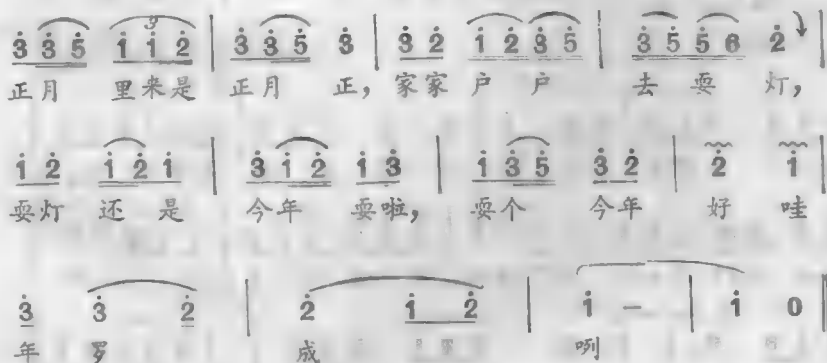 3 3 5 1 1 2 | 3 3 5 3 | 3 2 1 2 3 5 | 3 5 5 6 2 |
正月 里来是 正月 正，家家 户 户 去 耍 灯，
1 2 1 2 1 | 3 1 2 1 3 | 1 3 5 3 2 | 2 1
耍灯 还 是 今年 耍啦，耍个 今年 好 哇
3 3 2 | 2 1 2 | 1 - | 1 0
年 罗 成 咧